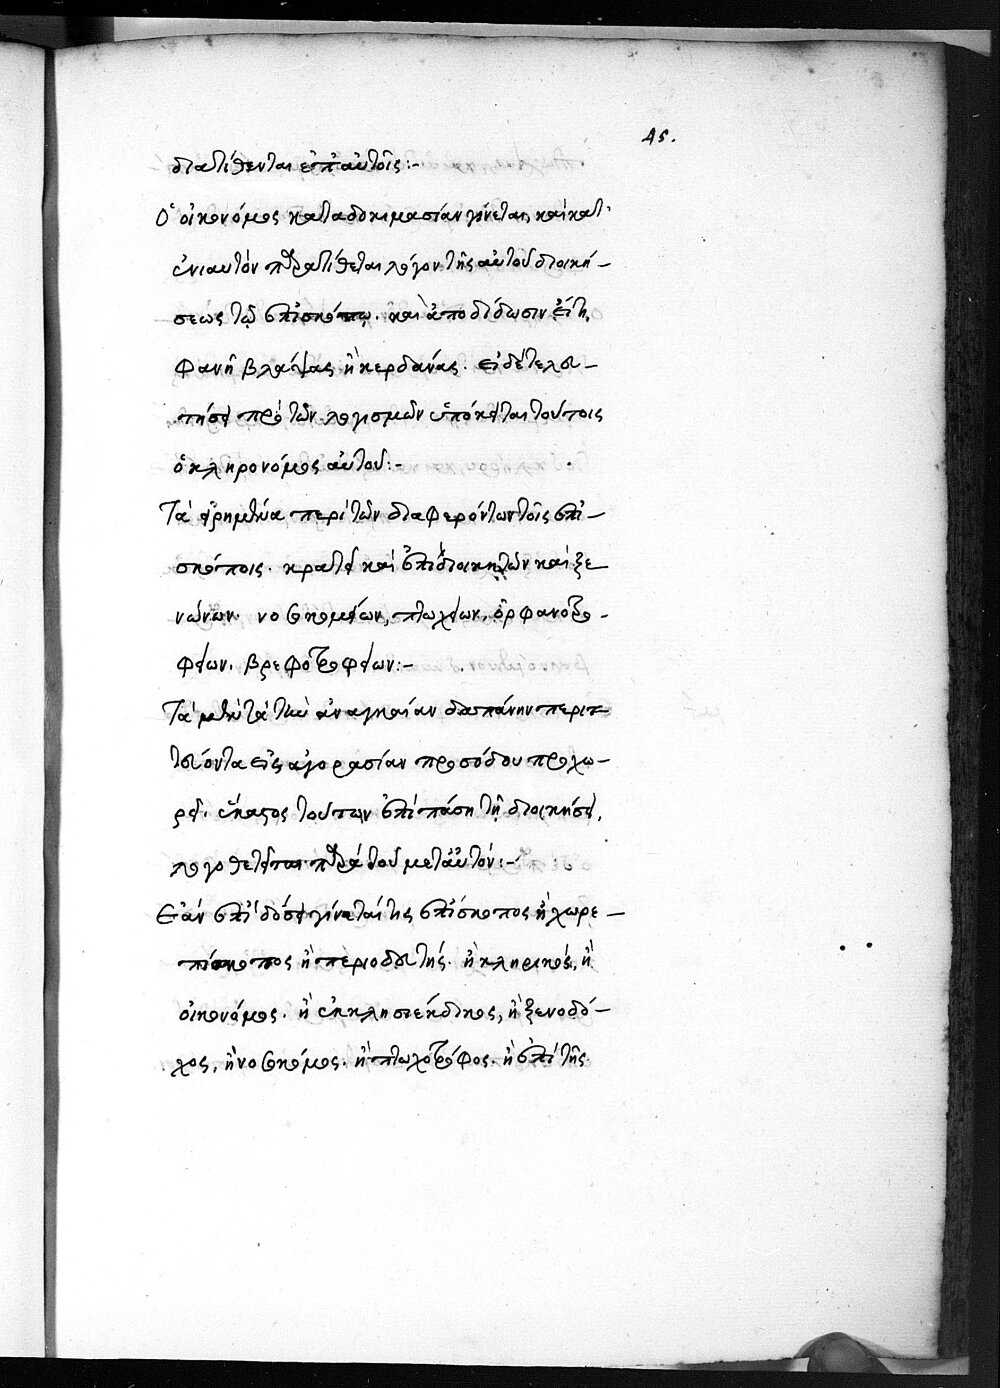 45.
διατίθενται ἐπ' αὐτοῖς:-
Ὁ οἰκονόμος κατὰ δοκιμασίαν γίνεται, καὶ κατ'
ἐνιαυτὸν παρατίθεται λόγον τῆς αὐτοῦ διοική-
σεως τῷ ἐπισκόπῳ. καὶ ἀποδίδωσιν εἴ τι
φανῇ βλάψας ἢ κερδάνας. εἰ δὲ τελευ-
τήσει πρὸ τῶν λογισμῶν ὑπόκειται τούτοις
ὁ κληρονόμος αὐτοῦ:-
Τὰ εἰρημένα περὶ τῶν διαφερόντων τοῖς ἐπι-
σκόποις. κρατεῖ καὶ ἐπὶ διοικητῶν καὶ ξε-
νώνων. νοσοκομείων, πτωχείων. ὀρφανοτρο-
φείων. βρεφοτροφείων:-
Τὰ μετὰ τὴν ἀναγκαίαν δαπάνην περιτ-
τεύοντα εἰς ἀγορασίαν προσόδου προχω-
ρεῖ. ἕκαστος τούτων ἐπὶ πάσῃ τῇ διοικήσει,
λογοθετεῖται παρὰ τοῦ μετ' αὐτόν:-
Ἐὰν ἐπὶ δόσει γίνεταί τις ἐπίσκοπος ἢ χωρε-
πίσκοπος ἢ περιοδευτής. ἢ κληρικός, ἢ
οἰκονόμος. ἢ ἐκκλησιέκδικος, ἢ ξενοδό-
χος, ἢ νοσοκόμος. ἢ πτωχοτρόφος. ἢ ἐπὶ τῆς